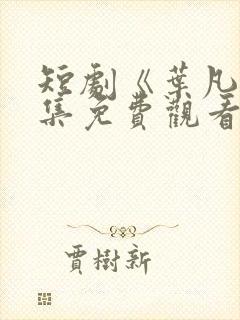 短劇《葉凡
集免費觀看
賈樹新